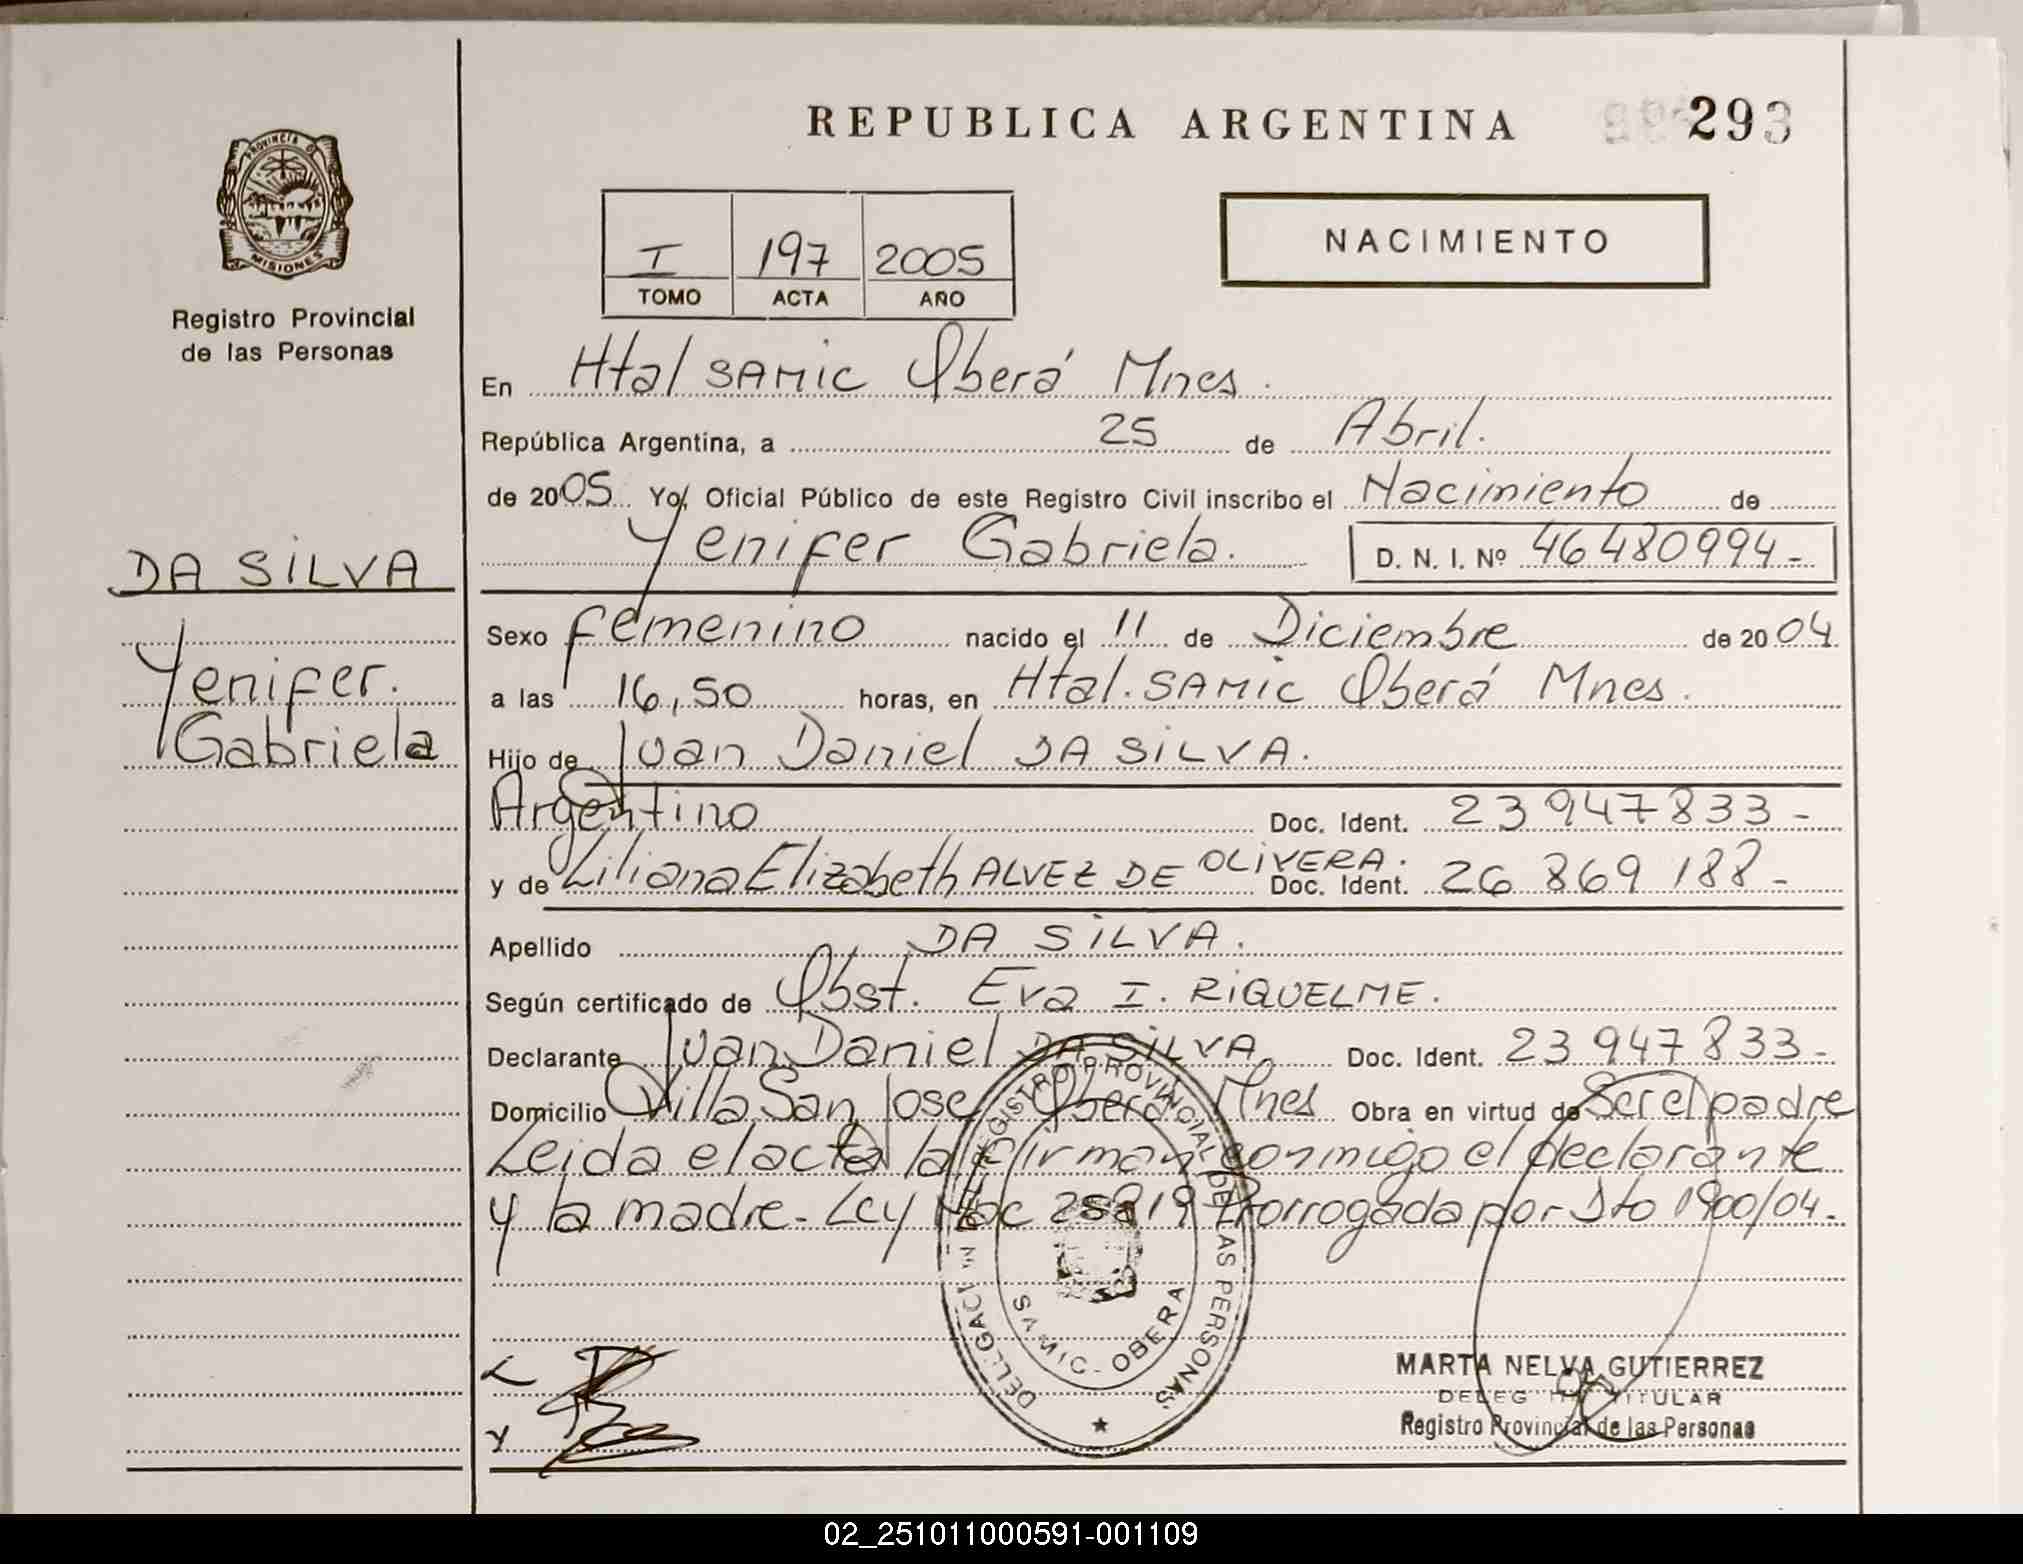 REPUBLICA ARGENTINA
293
PROVINCIA DE
MISIONES
Registro Provincial
de las Personas
I 197 2005
TOMO ACTA AÑO
NACIMIENTO
En Htal SAMIC Oberá Mnes.
República Argentina, a 25 de Abril.
de 2005 Yo, Oficial Público de este Registro Civil inscribo el Nacimiento de
Yenifer Gabriela. D. N. I. Nº 46480994-
DA SILVA
Yenifer.
Gabriela
Sexo femenino nacido el 11 de Diciembre de 2004
a las 16,50 horas, en Htal. SAMIC Oberá Mnes.
Hijo de Juan Daniel DA SILVA.
Argentino Doc. Ident. 23947833-
y de Liliana Elizabeth ALVEZ DE OLIVERA. Doc. Ident. 26869188-
Apellido DA SILVA.
Según certificado de Obst. Eva I. RIQUELME.
Declarante Juan Daniel DA SILVA Doc. Ident. 23947833-
Domicilio Villa San Jose Oberá Mnes Obra en virtud de Ser el padre
Leida el acta la firman conmigo el declarante
y la madre. Ley Nac 25819 Prorrogada por Dto 1900/04.
REGISTRO PROVINCIAL DE LAS PERSONAS
SAMIC - OBERA
MARTA NELVA GUTIERREZ
TITULAR
Registro Provincial de las Personas
02_251011000591-001109